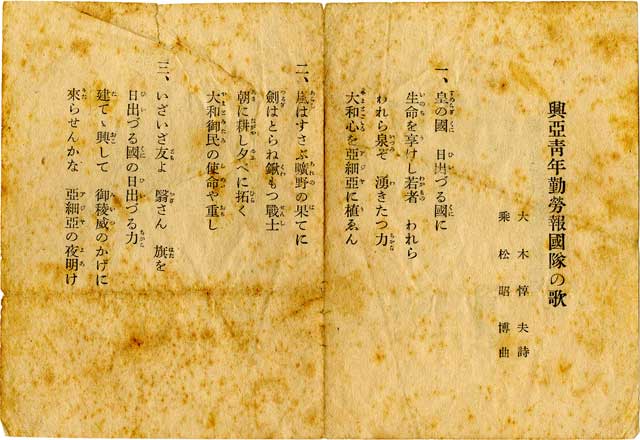 興亞青年勤勞報國隊の歌
大木惇夫詩
乘松昭博曲
一、皇の國 日出づる國に
生命を享けし若者 われら
われら泉ぞ 湧きたつ力
大和心を亞細亞に植ゑん
二、嵐はすさぶ曠野の果てに
劍はとらね鍬もつ戰士
朝に耕し夕べに拓く
大和御民の使命や重し
三、いざいざ友よ 翳さん 旗を
日出づる國の日出づる力
建てゝ興して 御稜威のかげに
來らせんかな 亞細亞の夜明け